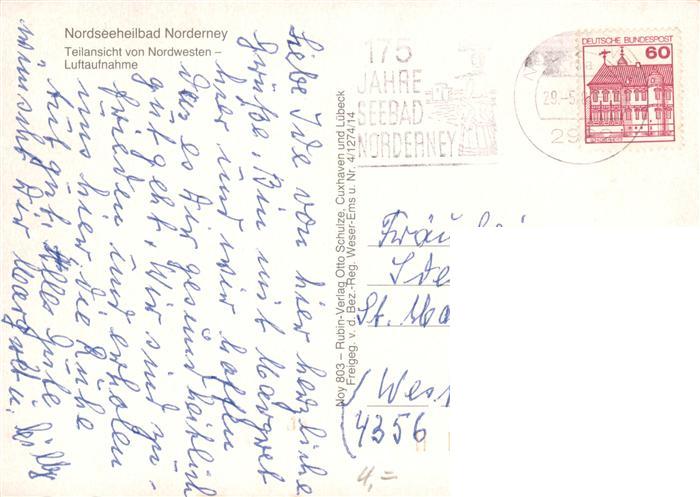 Nordseeheilbad Norderney
Teilansicht von Nordwesten –
Luftaufnahme
Liebe Ide von hier herzliche
Grüße. Bin mit Margret
hier und wir hoffen
das es Dir gesundheitlich
gut geht. Wir sind zu-
frieden und erholen
uns hier die Ruhe
tut gut. Alles Gute
wünscht Dir Margret u.
Noy 803 – Rubin-Verlag Otto Schulze, Cuxhaven und Lübeck
Freigeg. v. d. Bez.-Reg. Weser-Ems u. Nr. 4/1274/14
175
JAHRE
SEEBAD
NORDERNEY
29.-5.
DEUTSCHE BUNDESPOST
60
Fräu
Ide
St. Ma
(Wes
4356
4,=